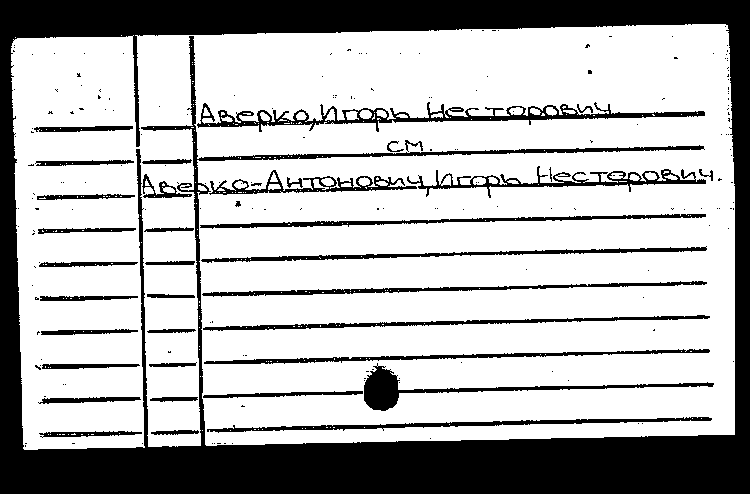 Аверко, Игорь Несторович
см.
Аверко-Антонович, Игорь Несторович.